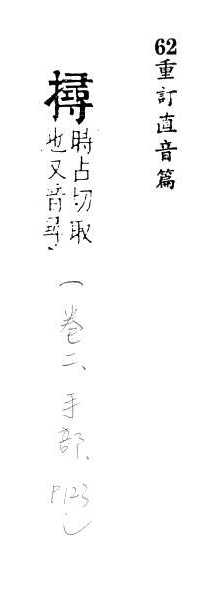 62重訂直音篇
撏時占切取
也又音尋
（卷二、手部、P123）